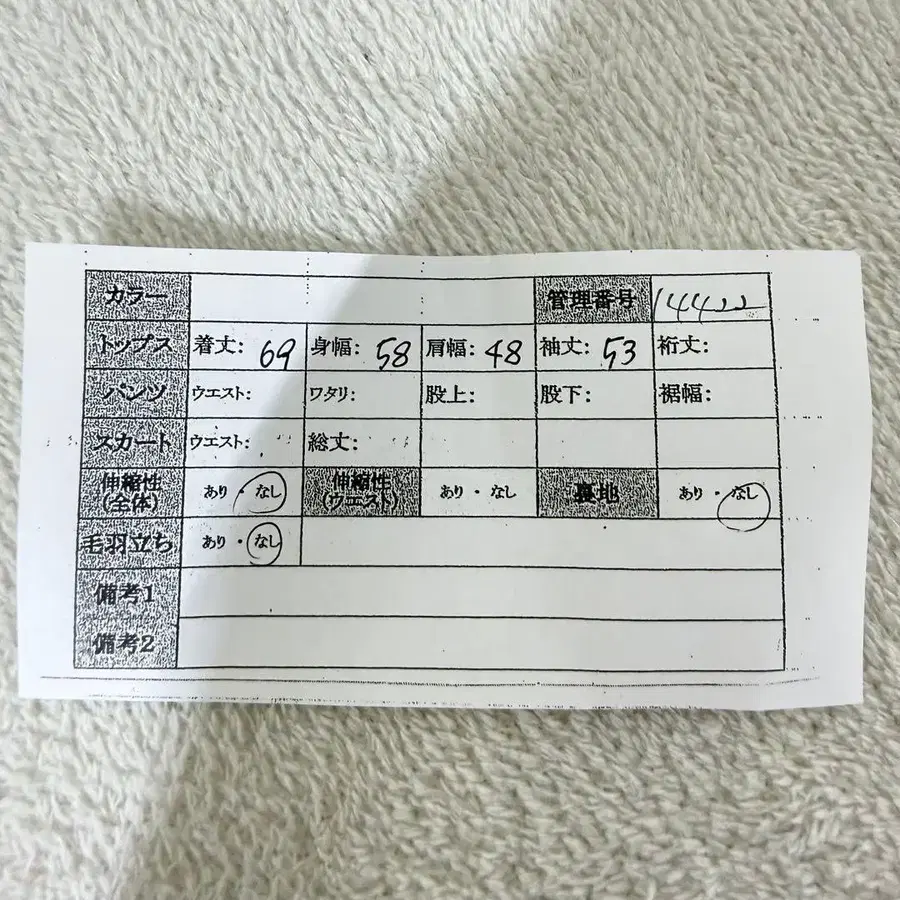 カラー 管理番号 14422
トップス 着丈: 69 身幅: 58 肩幅: 48 袖丈: 53 裄丈:
パンツ ウエスト: ワタリ: 股上: 股下: 裾幅:
スカート ウエスト: 総丈:
伸縮性(全体) あり・なし 伸縮性(ウエスト) あり・なし 裏地 あり・なし
毛羽立ち あり・なし
備考1
備考2